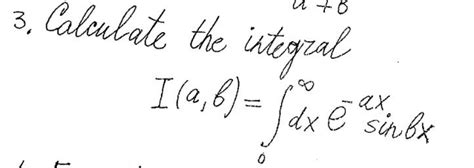 a + b
3. Calculate the integral
I(a,b) = ∫₀^∞ dx e^{-ax} sin bx